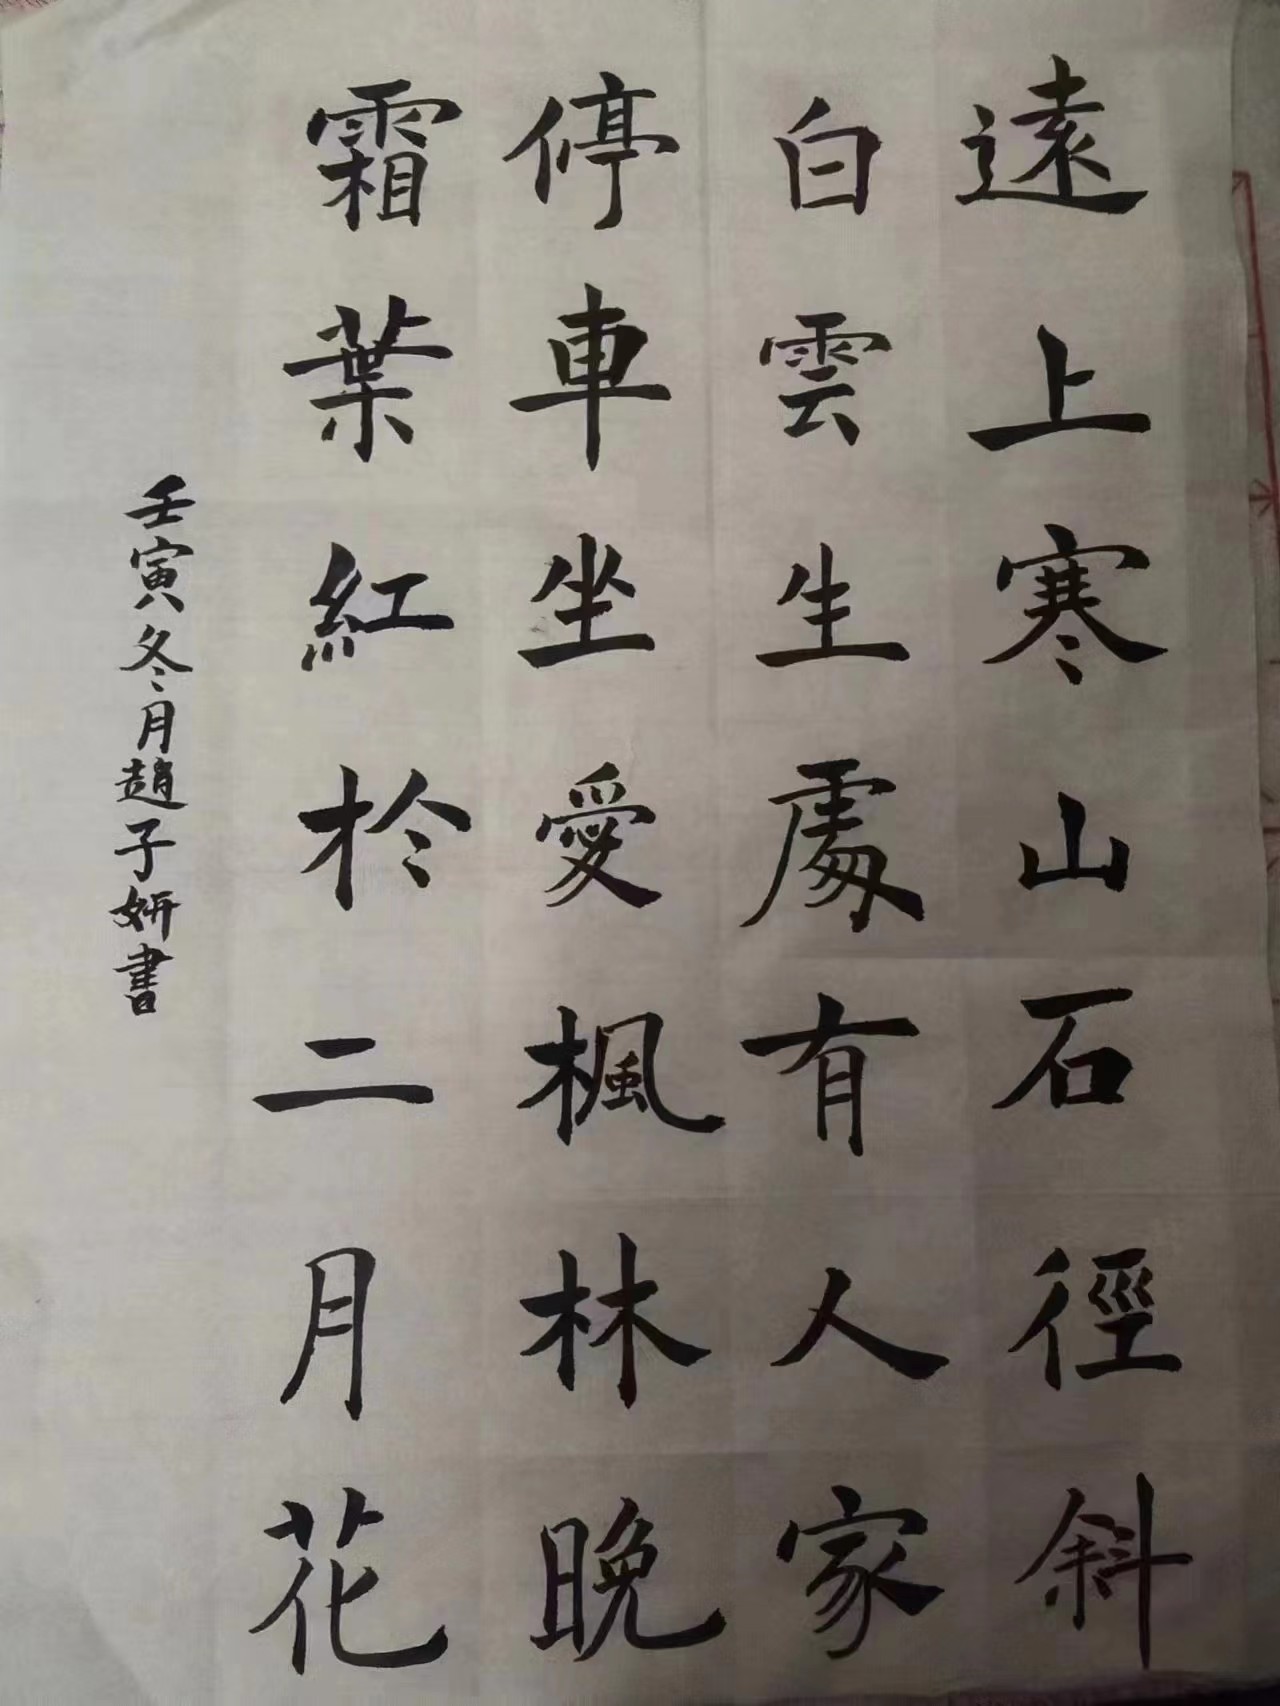 遠上寒山石徑斜
白雲生處有人家
停車坐愛楓林晚
霜葉紅於二月花
壬寅冬月趙子妍書